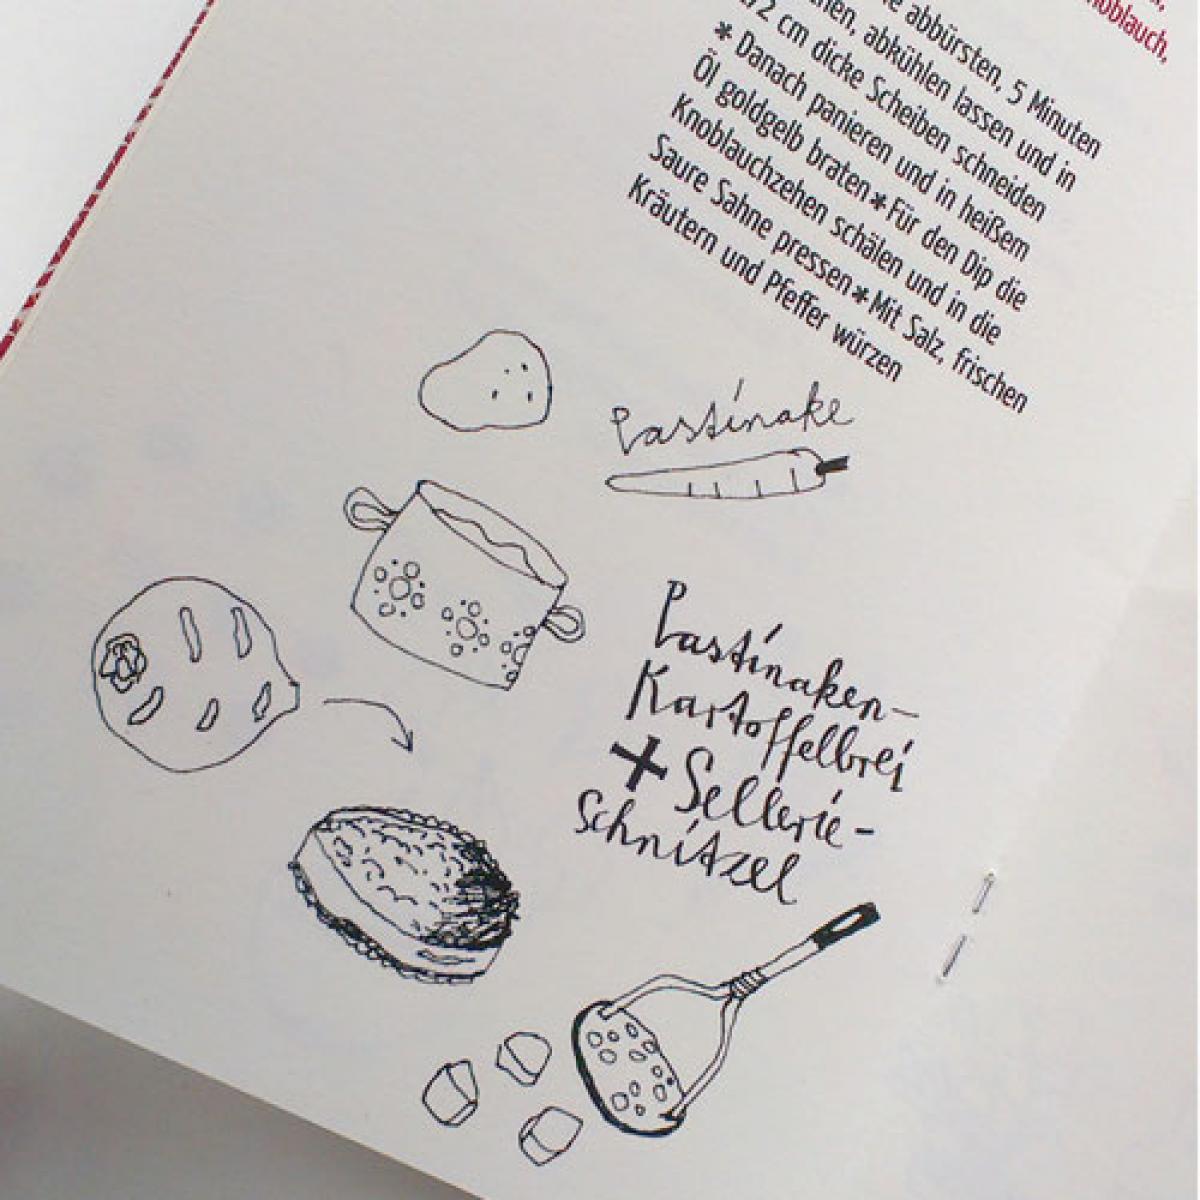 noblauch,
abbürsten, 5 Minuten
abkühlen lassen und in
/2 cm dicke Scheiben schneiden
* Danach panieren und in heißem
Öl goldgelb braten * Für den Dip die
Knoblauchzehen schälen und in die
Saure Sahne pressen * Mit Salz, frischen
Kräutern und Pfeffer würzen
Pastinake
Pastinaken-
Kartoffelbrei
+ Sellerie-
Schnitzel